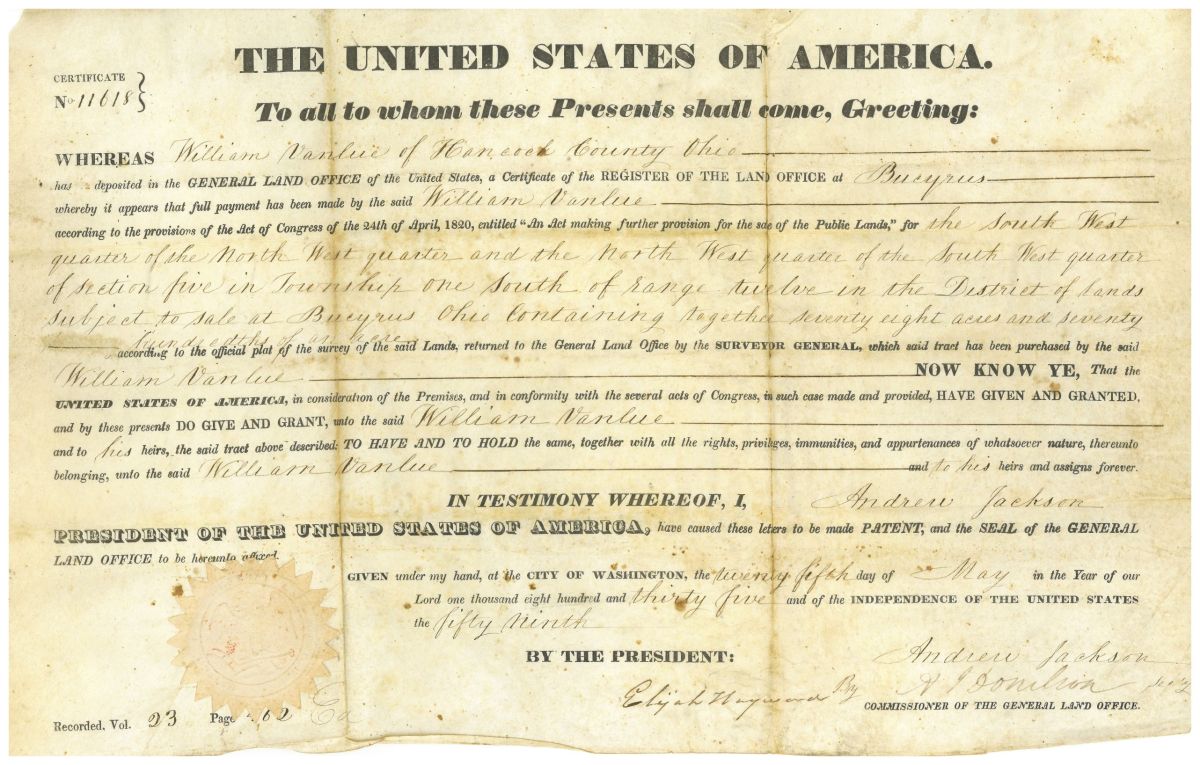 THE UNITED STATES OF AMERICA.
CERTIFICATE
No 11618
To all to whom these Presents shall come, Greeting:
WHEREAS William Vanlue of Hancock County Ohio
has deposited in the GENERAL LAND OFFICE of the United States, a Certificate of the REGISTER OF THE LAND OFFICE at Bucyrus
whereby it appears that full payment has been made by the said William Vanlue
according to the provisions of the Act of Congress of the 24th of April, 1820, entitled "An Act making further provision for the sae of the Public Lands," for the South West
quarter of the North West quarter and the North West quarter of the South West quarter
of section five in Township one South of range twelve in the District of lands
subject to sale at Bucyrus Ohio Containing together seventy eight acres and seventy
hundredths of an acre
according to the official plat of the survey of the said Lands, returned to the General Land Office by the SURVEYOR GENERAL, which said tract has been purchased by the said
William Vanlue NOW KNOW YE, That the
UNITED STATES OF AMERICA, in consideration of the Premises, and in conformity with the several acts of Congress, in such case made and provided, HAVE GIVEN AND GRANTED,
and by these presents DO GIVE AND GRANT, unto the said William Vanlue
and to his heirs, the said tract above described: TO HAVE AND TO HOLD the same, together with all the rights, privileges, immunities, and appurtenances of whatsoever nature, thereunto
belonging, unto the said William Vanlue and to his heirs and assigns forever.
IN TESTIMONY WHEREOF, I, Andrew Jackson
PRESIDENT OF THE UNITED STATES OF AMERICA, have caused these leters to be made PATENT, and the SEAL of the GENERAL
LAND OFFICE to be hereunto affixed.
GIVEN under my hand, at the CITY OF WASHINGTON, the twenty fifth day of May in the Year of our
Lord one thousand eight hundred and thirty five and of the INDEPENDENCE OF THE UNITED STATES
the fifty ninth
BY THE PRESIDENT: Andrew Jackson
Elijah Hayward By A J Donelson Secy
COMMISSIONER OF THE GENERAL LAND OFFICE.
Recorded, Vol. 23 Page 462